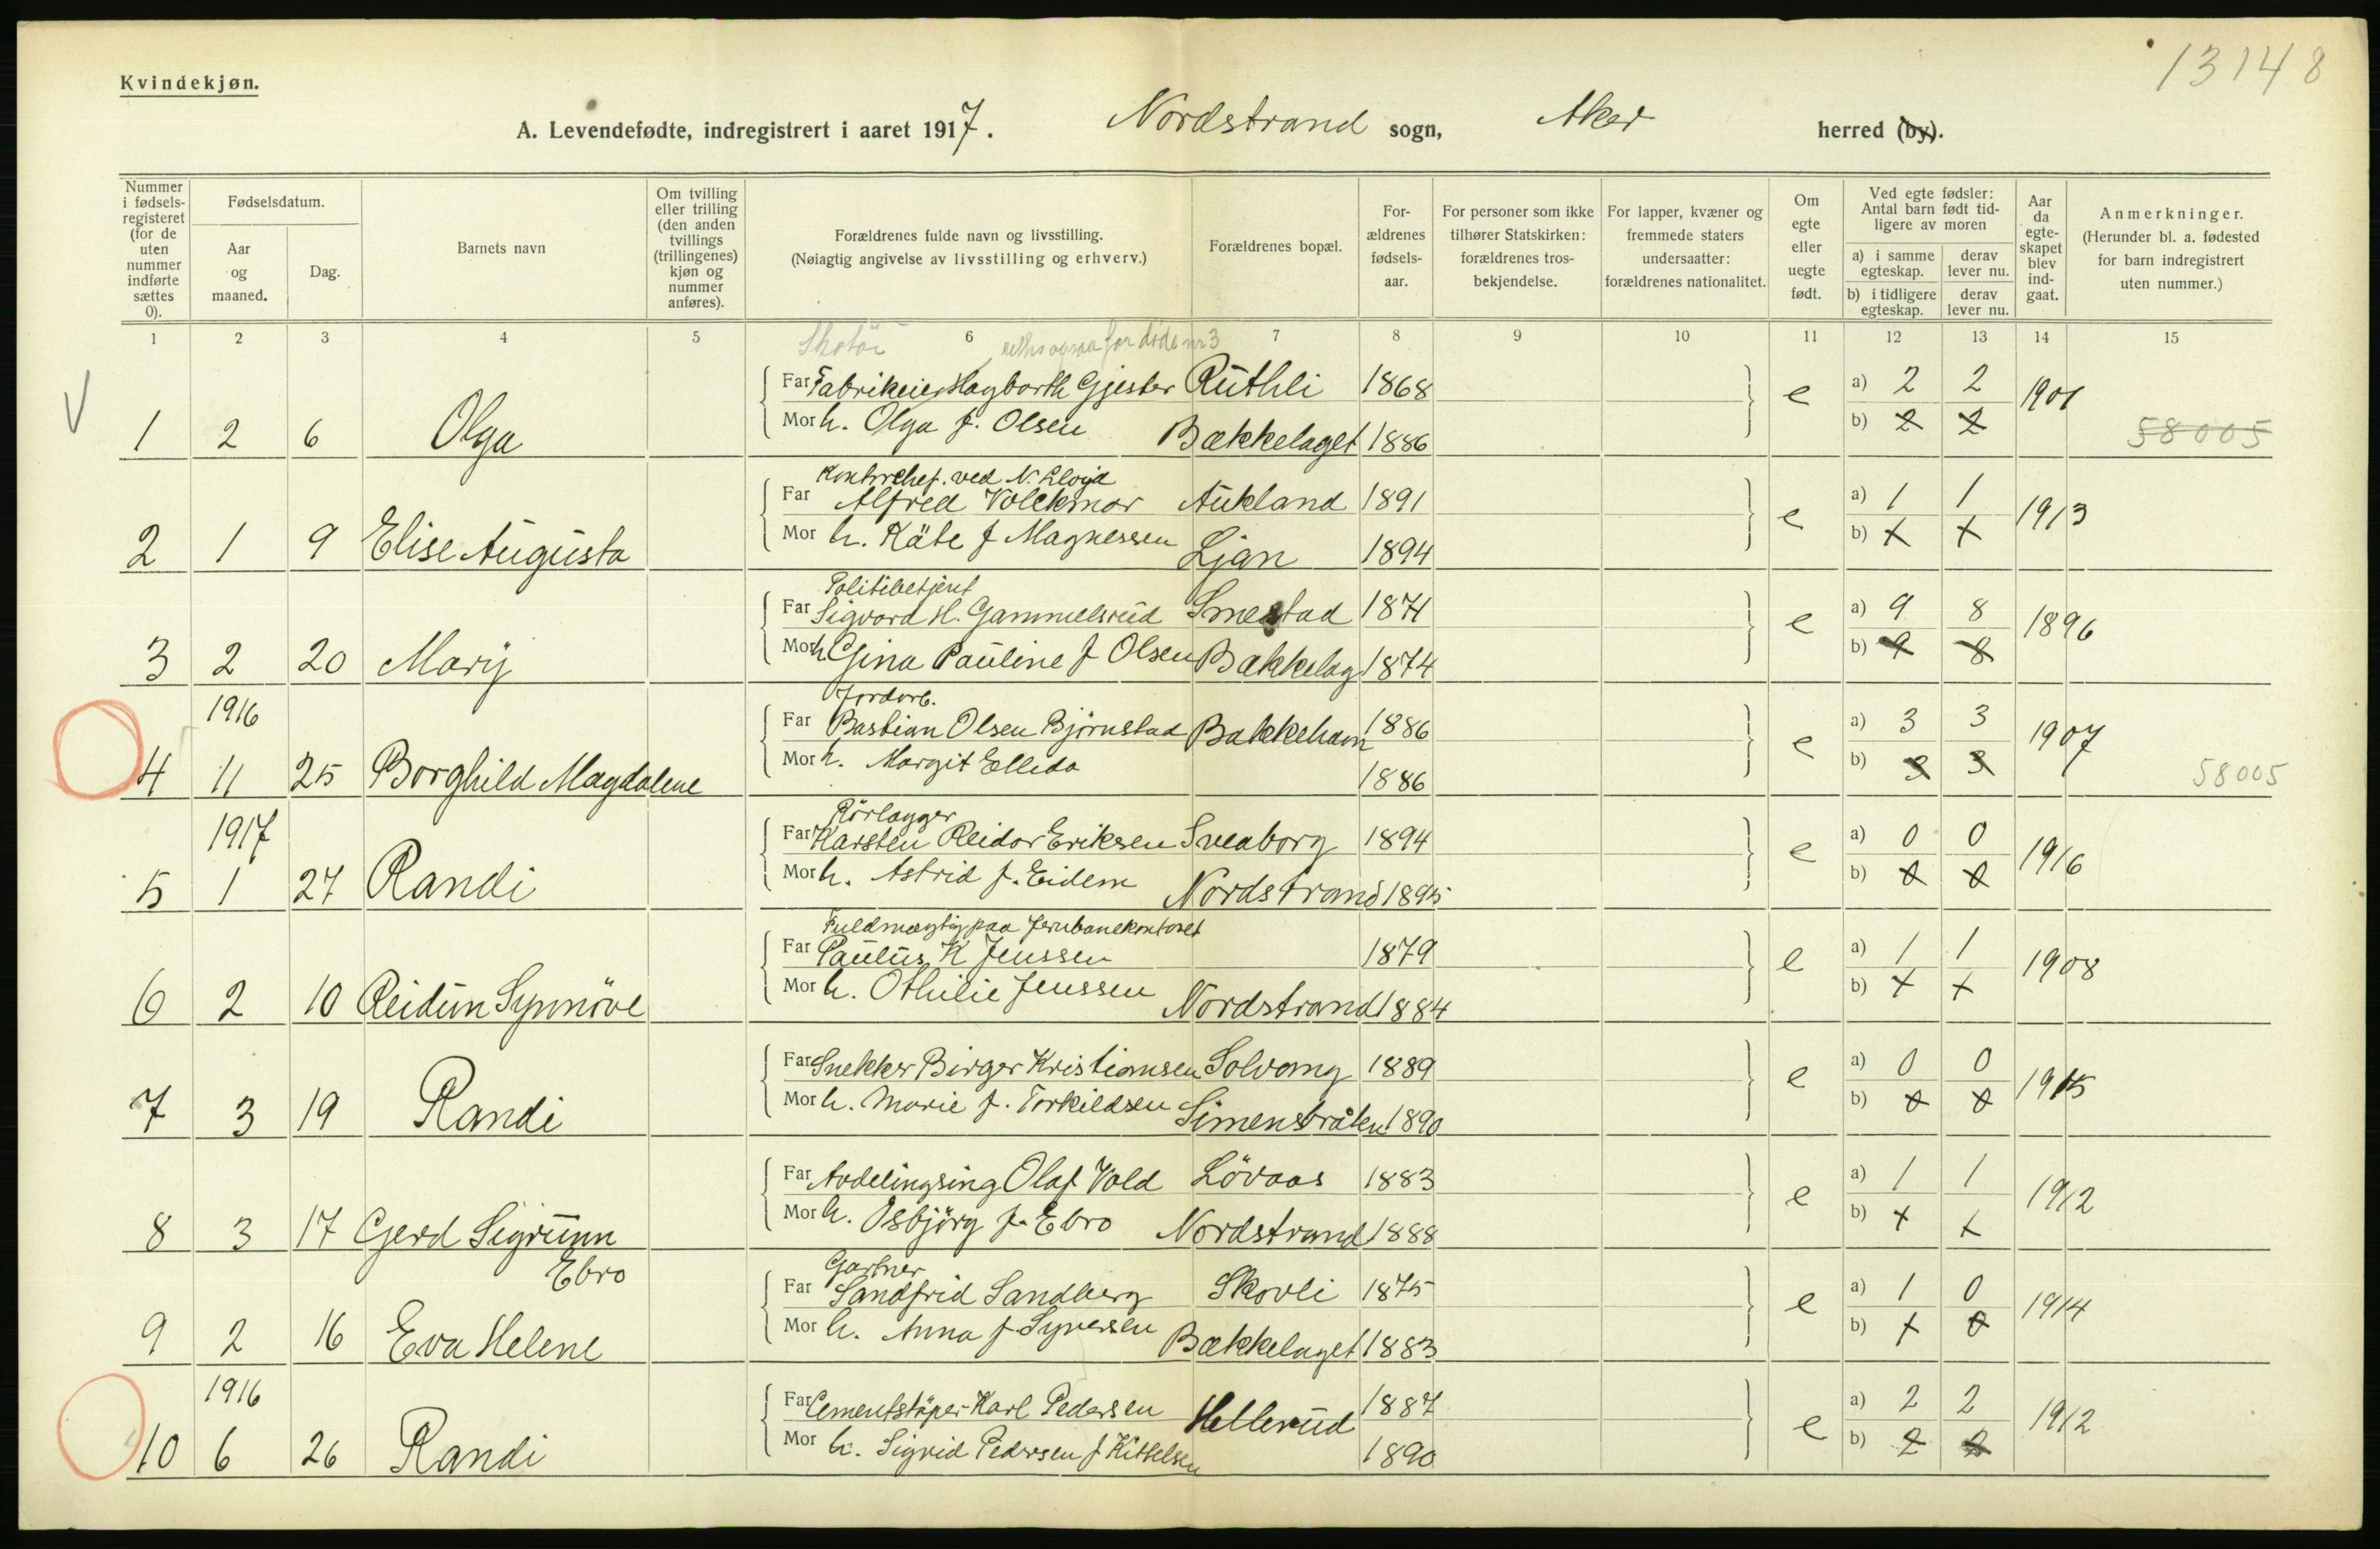 13148
Kvindekjøn.
A. Levendefødte, indregistrert i aaret 1917. Nordstrand sogn, Aker herred (by).
Nummer i fødsels-registeret (for de uten nummer indførte sættes 0).
Fødselsdatum.
Aar og maaned.
Dag.
Barnets navn
Om tvilling eller trilling (den anden tvillings (trillingenes) kjøn og nummer anføres).
Forældrenes fulde navn og livsstilling.
(Nøiagtig angivelse av livsstilling og erhverv.)
Forældrenes bopæl.
For-ældrenes fødsels-aar.
For personer som ikke tilhører Statskirken: forældrenes tros-bekjendelse.
For lapper, kvæner og fremmede staters undersaatter: forældrenes nationalitet.
Om egte eller uegte født.
Ved egte fødsler: Antal barn født tid-ligere av moren
a) i samme egteskap. derav lever nu.
b) i tidligere egteskap. derav lever nu.
Aar da egte-skapet blev ind-gaat.
Anmerkninger.
(Herunder bl. a. fødested for barn indregistrert uten nummer.)
1 2 3 4 5 6 7 8 9 10 11 12 13 14 15
for døde nr 3
Far Fabrikeier Hagbarth Gjester Ruthli 1868 e a) 2 2 1901
1 2 6 Olga Mor h. Olga f. Olsen Bækkelaget 1886 b) 2 2 58005
Kontorchef. ved N. Lloyd
Far Alfred Volckmar Aukland 1891 e a) 1 1 1913
2 1 9 Elise Augusta Mor h. Käte f Magnessen Ljan 1894 b) + +
Politibetjent
Far Sigvard H. Gammelsrud Smestad 1871 e a) 9 8 1896
3 2 20 Mary Mor h Gina Pauline f Olsen Bækkelag 1874 b) 9 8
1916 Jordarb.
Far Bastian Olsen Bjørnstad Bakkeham 1886 e a) 3 3 1907
4 11 25 Borghild Magdalene Mor h. Margit Ellida 1886 b) 3 3 58005
1917 Rörlægger
Far Karsten Reidar Eriksen Sveaborg 1894 e a) 0 0 1916
5 1 27 Randi Mor h. Astrid f. Eidem Nordstrand 1895 b) 0 0
Fuldmægtig paa Jernbanekontoret
Far Paulus K Jenssen 1879 e a) 1 1 1908
6 2 10 Reidun Synnöve Mor h. Othilie Jenssen Nordstrand 1884 b) + +
Far Snekker Birger Kristiansen Solvang 1889 e a) 0 0 1915
7 3 19 Randi Mor h. Marie f. Torkildsen Simensbråten 1890 b) 0 0
Far Avdelingsing Olaf Vold Lövaas 1883 e a) 1 1 1912
8 3 17 Gerd Sigrunn Mor h. Osbjörg f. Ebro Nordstrand 1888 b) + +
Ebro Gartner
Far Sandfrid Sandberg Skovli 1875 e a) 1 0 1914
9 2 16 Eva Helene Mor h. Anna f Syversen Bækkelaget 1883 b) + 0
1916
Far Cementstöper Karl Pedersen Hellerud 1887 e a) 2 2 1912
10 6 26 Randi Mor h. Sigrid Pedersen f Kittelsen 1890 b) 2 2